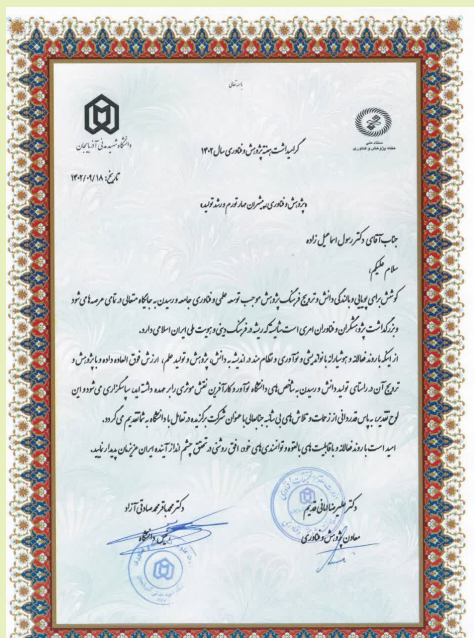 باسمه تعالی
دانشگاه شهید مدنی آذربایجان
ستاد ملی
هفته پژوهش و فناوری
گرامیداشت هفته پژوهش و فناوری سال ۱۴۰۲
تاریخ: ۱۴۰۲/۰۹/۱۸
«پژوهش و فناوری، پیشران مهار تورم و رشد تولید»
جناب آقای دکتر رسول اسماعیل زاده
سلام علیکم،
کوشش برای پویایی و بالندگی دانش و ترویج فرهنگ پژوهش موجب توسعه علمی و فناوری جامعه و رسیدن به جایگاه متعالی در تمامی عرصه‌های می شود
و بزرگداشت پژوهشگران و فناوران امری است شایسته که ریشه در فرهنگ دینی و هویت ملی ایران اسلامی دارد.
از اینکه با روند فعالانه و هوشیارانه با نواندیشی و نوآوری و نظام مند در اندیشه به دانش، پژوهش و تولید علم، ارزشی فوق العاده داده و با پژوهش و
ترویج آن در راستای تولید دانش و رسیدن به شاخص های دانشگاه نوآور و کارآفرین نقش موثری را بر عهده داشته اید، سپاسگزاری می شود و این
لوح تقدیر به پاس قدردانی از زحمات و تلاش های بی شائبه جنابعالی با عنوان شرکت برگزیده در تعامل با دانشگاه به شما تقدیم می گردد.
امید است با روند فعالانه و با قابلیت های بالقوه و توانمندی های خود، افق روشنی در تحقق چشم انداز آینده ایران عزیزمان پدیدار نمایید.
دکتر علیرضا امانی قدیم
معاون پژوهش و فناوری
دکتر محمدباقر محمدصادقی آزاد
رئیس دانشگاه